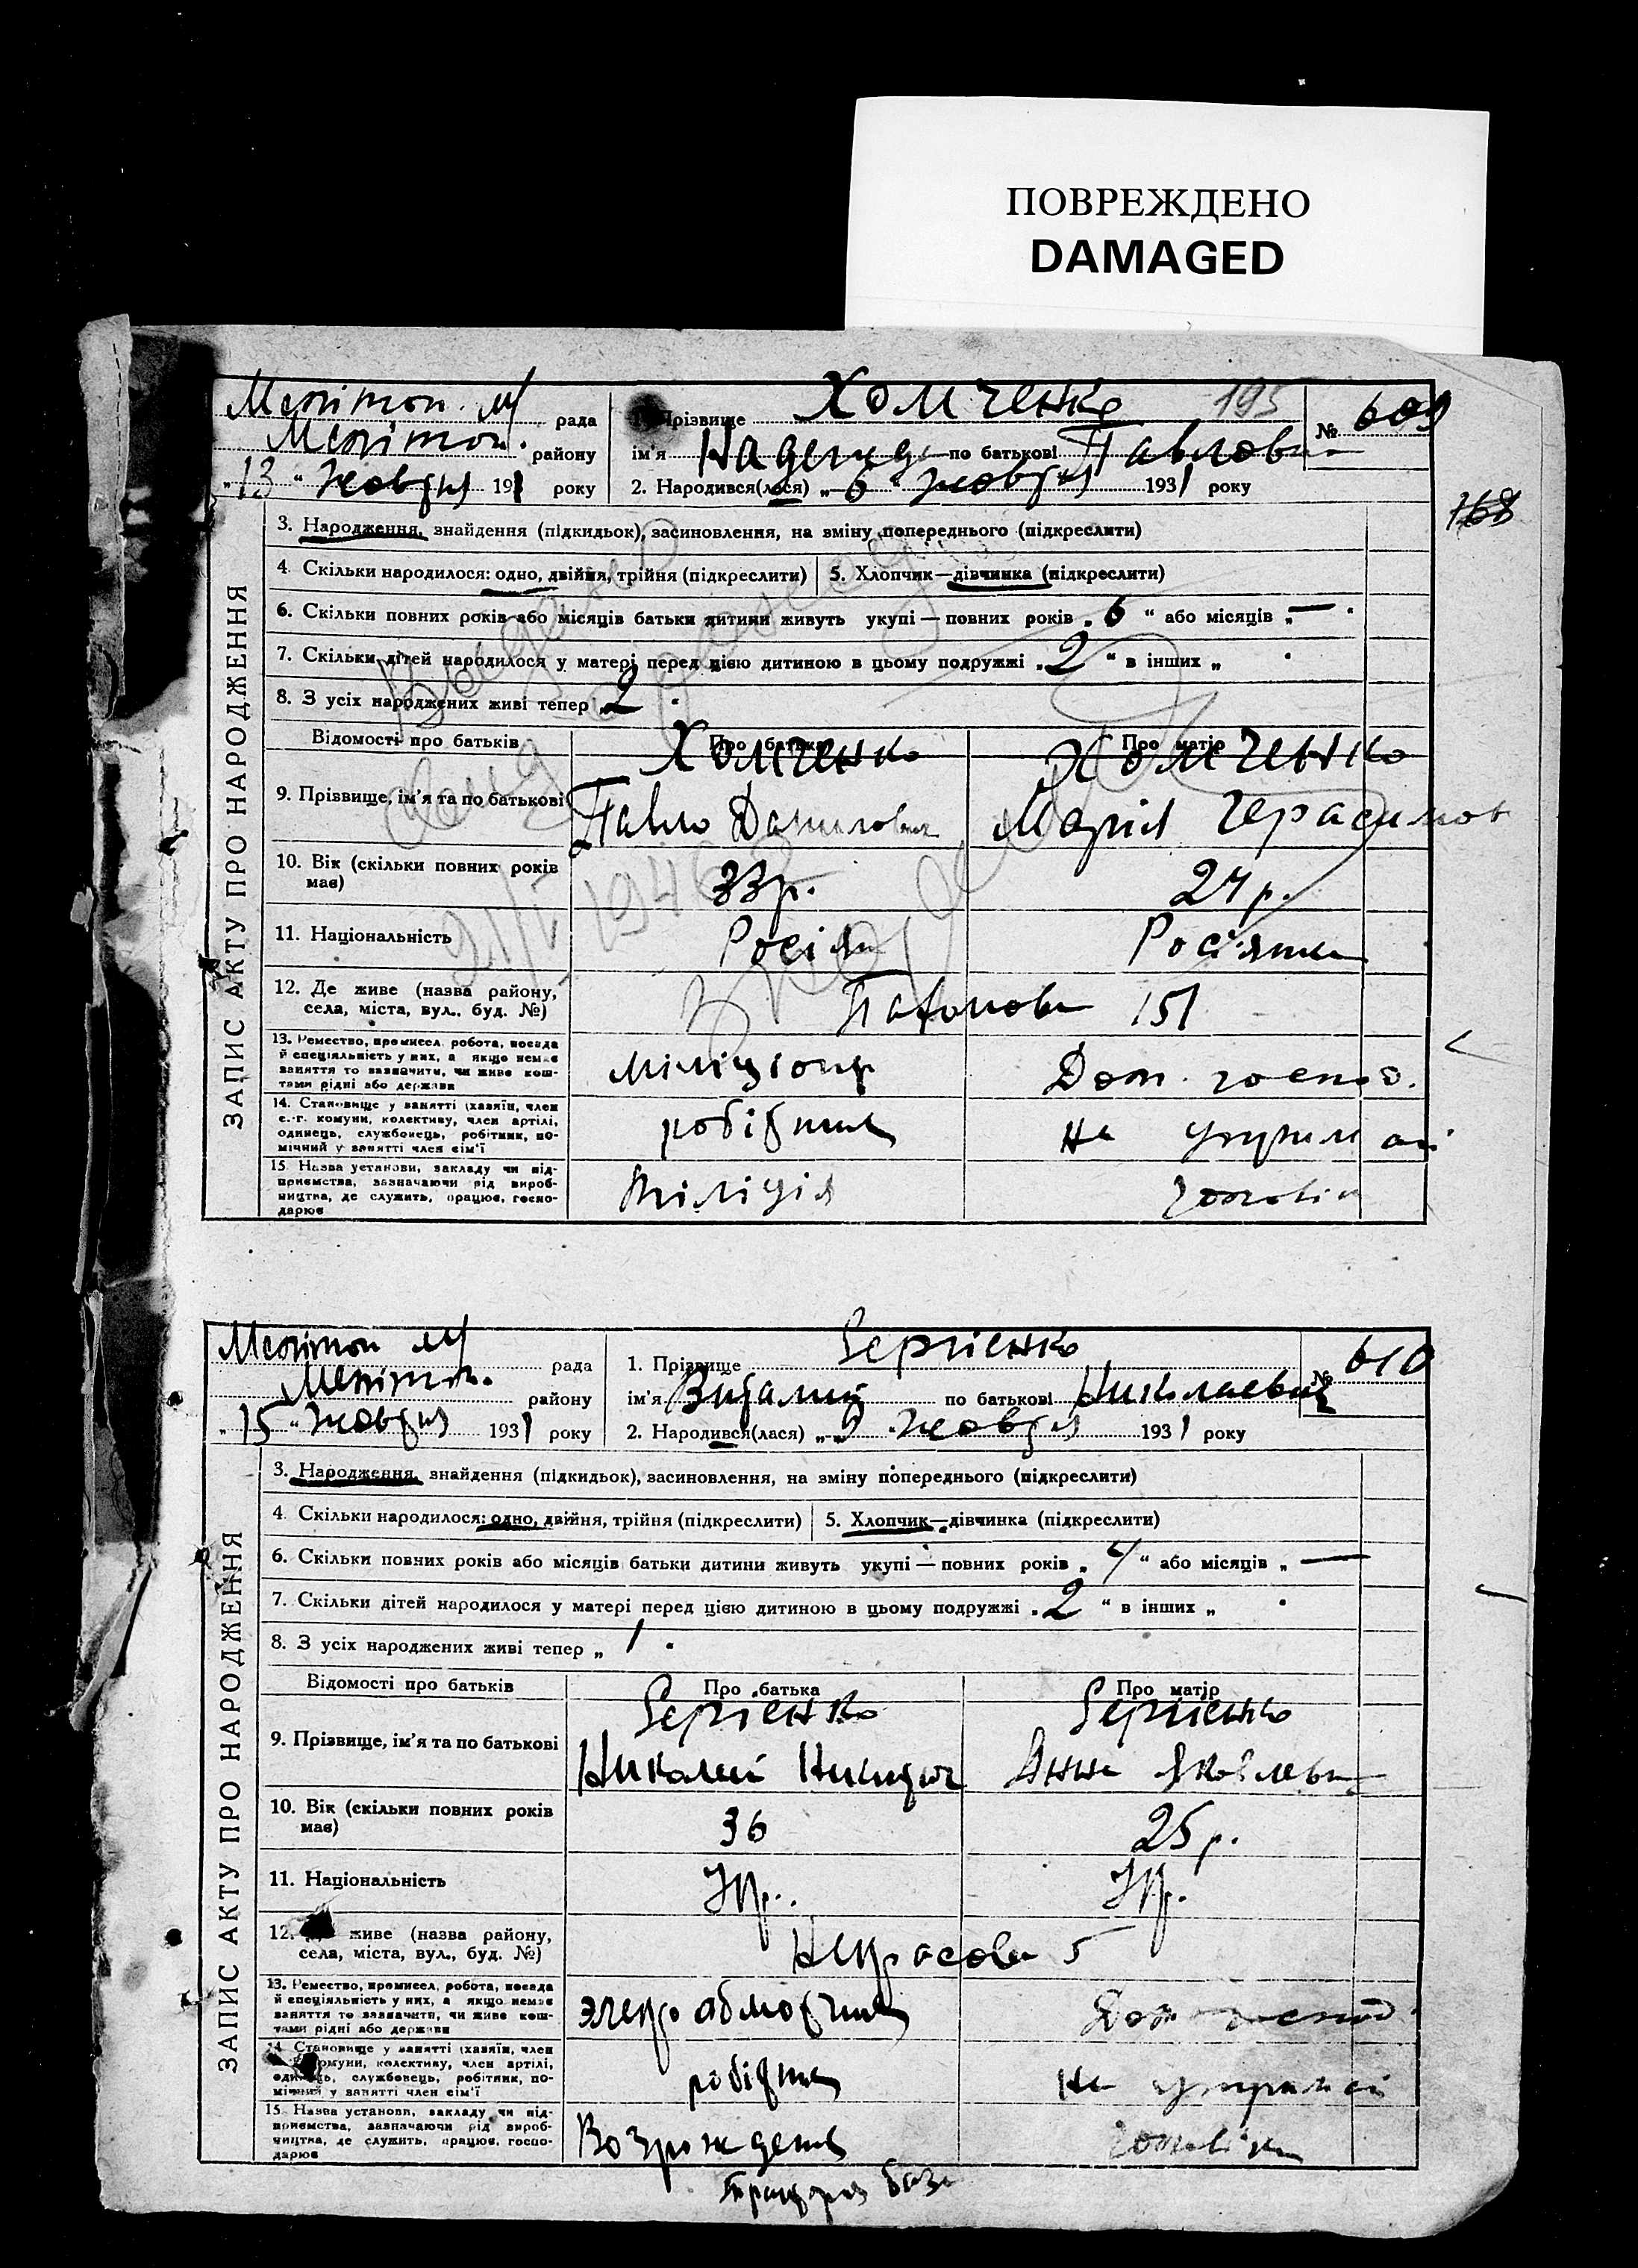 ПОВРЕЖДЕНО
DAMAGED
Мелітоп. м/ рада
Мелітоп. району
"13" жовтня 1931 року
1. Прізвище Хомченко 195
№ 609
ім'я Надежда по батькові Павловна
2. Народився(лася) "6" жовтня 1931 року
168
ЗАПИС АКТУ ПРО НАРОДЖЕННЯ
3. Народження, знайдення (підкидьок), засиновлення, на зміну попереднього (підкреслити)
4. Скільки народилося: одно, двійня, трійня (підкреслити) 5. Хлопчик—дівчинка (підкреслити)
6. Скільки повних років або місяців батьки дитини живуть укупі — повних років „ 6 “ або місяців „ —
7. Скільки дітей народилося у матері перед цією дитиною в цьому подружжі „ 2 “ в інших „
8. З усіх народжених живі тепер „ 2
Відомості про батьків Про батька Про матір
Хомченко Хомченко
9. Прізвище, ім'я та по батькові
Павло Данилович Марія Герасимов
10. Вік (скільки повних років має) 33р. 24 р.
11. Національність Росіян Росіянка
12. Де живе (назва району, села, міста, вул., буд. №) 151
13. Ремество, промисел, робота, посада й спеціяльність у них, а якщо немає заняття то зазначити, чи живе коштами рідні або держави
міліціонер Дом. господ.
14. Становище у занятті (хазяїн, член с.-г. комуни, колективу, член артілі, одинець, службовець, робітник, помічний у занятті член сім'ї
робітник на утриман
15. Назва установи, закладу чи підприємства, зазначаючи рід виробництва, де служить, працює, господарює
Міліція чоловіка
1946
Мелітоп м/ рада
Мелітоп. району
"15" жовтня 1931 року
1. Прізвище Сергієнко
№ 610
ім'я Виталий по батькові Николаевич
2. Народився(лася) "9" жовтня 1931 року
ЗАПИС АКТУ ПРО НАРОДЖЕННЯ
3. Народження, знайдення (підкидьок), засиновлення, на зміну попереднього (підкреслити)
4. Скільки народилося: одно, двійня, трійня (підкреслити) 5. Хлопчик—дівчинка (підкреслити)
6. Скільки повних років або місяців батьки дитини живуть укупі — повних років „ 4 “ або місяців „ —
7. Скільки дітей народилося у матері перед цією дитиною в цьому подружжі „ 2 “ в інших „
8. З усіх народжених живі тепер „ 1
Відомості про батьків Про батька Про матір
Сергієнко Сергієнко
9. Прізвище, ім'я та по батькові
Николай Анна Яковлевна
10. Вік (скільки повних років має) 36 25 р.
11. Національність Укр. Укр.
12. живе (назва району, села, міста, вул., буд. №) Некрасова 5
13. Ремество, промисел, робота, посада й спеціяльність у них, а якщо немає заняття то зазначити, чи живе коштами рідні або держави
Дом господ
14. Становище у занятті (хазяїн, член комуни, колективу, член артілі, одинець, службовець, робітник, помічний у занятті член сім'ї
робітник на утриман
15. Назва установи, закладу чи підприємства, зазначаючи рід виробництва, де служить, працює, господарює
Возрождение чоловіка
база